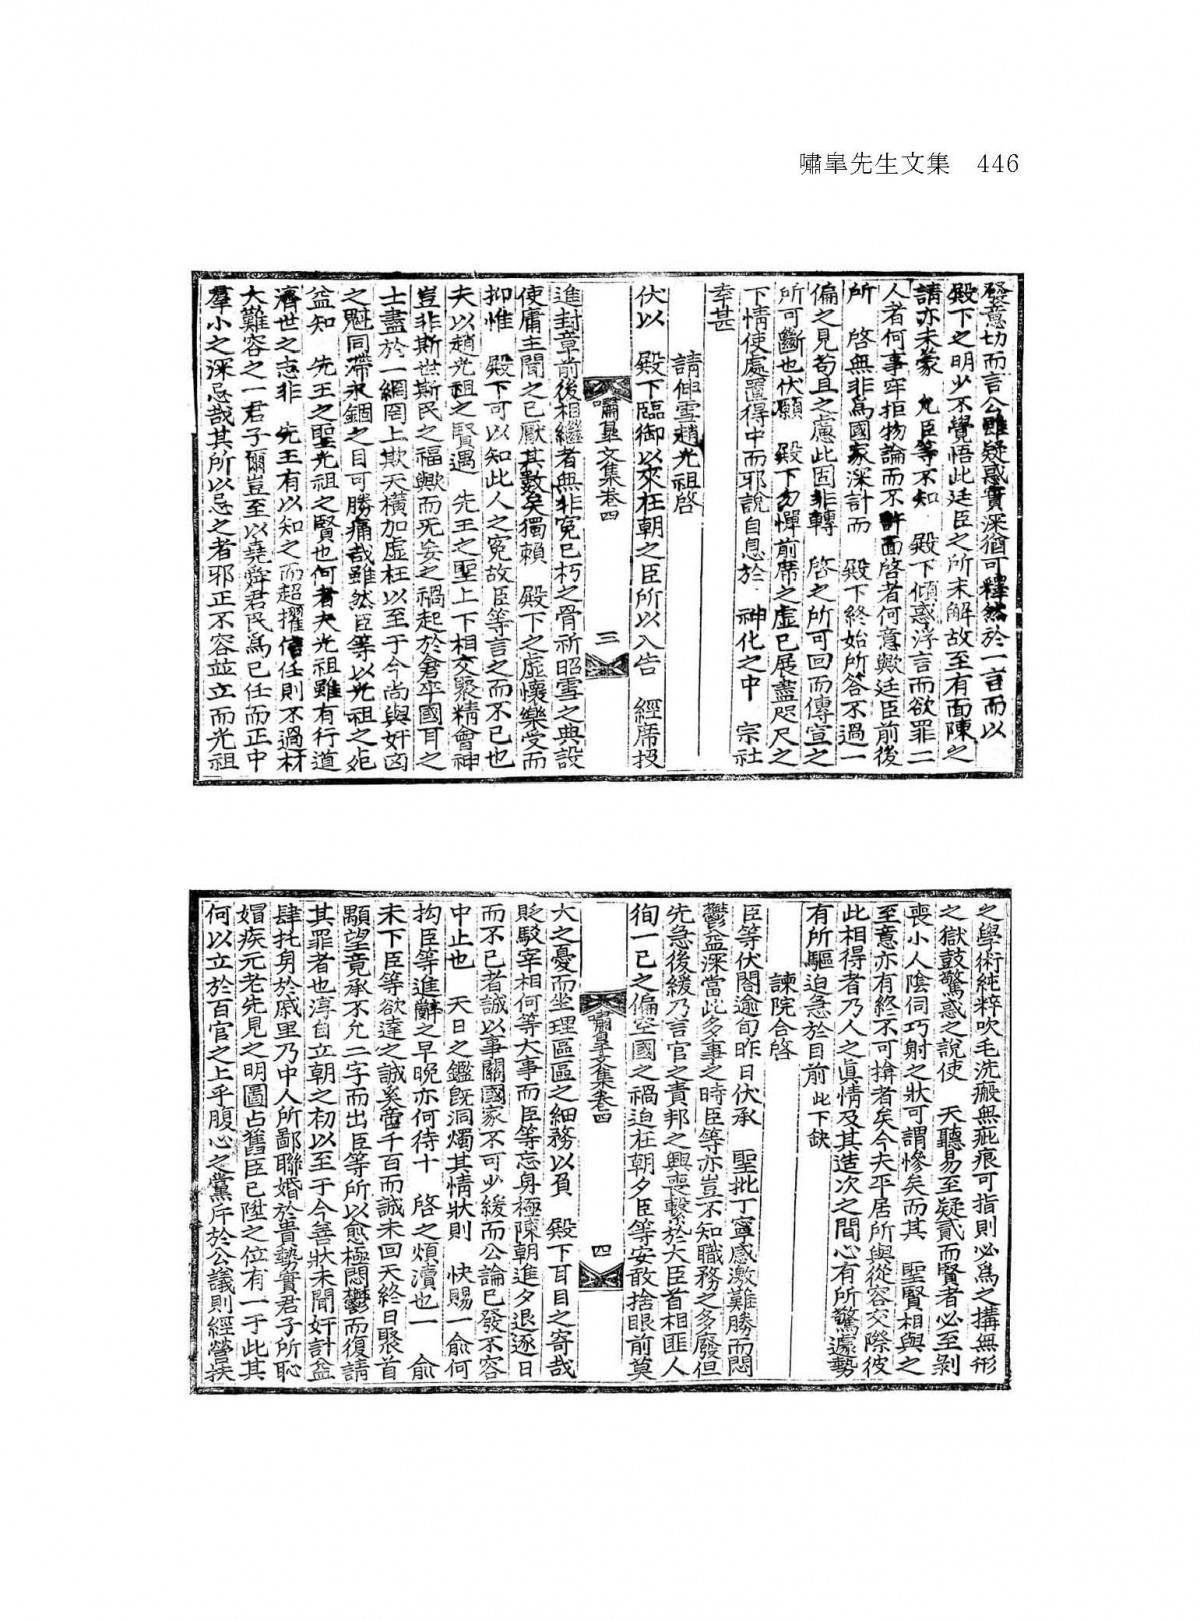 嘯皐先生文集 446
發意切而言公雖疑惑實深猶可釋然於一言而以
殿下之明少不覺悟此廷臣之所未解故至有面陳之
請亦未蒙 允臣等不知 殿下傾惑浮言而欲罪二
人者何事牢拒物論而不許面啓者何意歟廷臣前後
所 啓無非爲國家深計而 殿下終始所答不過一
偏之見苟且之慮此固非轉 啓之所可回而傳宣之
所可斷也伏願 殿下勿憚前席之虛已展盡咫尺之
下情使處置得中而邪說自息於 神化之中 宗社
幸甚
請伸雪趙光祖啓
伏以 殿下臨御以來在朝之臣所以入告 經席投
嘯皐文集卷四 三
進封章前後相繼者無非冤已朽之骨祈昭雪之典設
使庸主聞之已厭其數矣獨賴 殿下之虛懷樂受而
抑惟 殿下可以知此人之冤故臣等言之而不已也
夫以趙光祖之賢遇 先王之聖上下相交聚精會神
豈非斯世斯民之福歟而旡妄之禍起於倉卒國耳之
士盡於一網罔上欺天橫加虛枉以至于今尚與奸凶
之魁同滯永錮之目可勝痛哉雖然臣等以光祖之妮
益知 先王之聖光祖之賢也何者夫光祖雖有行道
濟世之志非 先王有以知之而超擢信任則不過材
大難容之一君子爾豈至以堯舜君民爲已任而正中
羣小之深忌哉其所以忌之者邪正不容並立而光祖
之學術純粹吹毛洗瘢無疵痕可指則必爲之搆無形
之獄鼓驚惑之說使 天聽易至疑貳而賢者必至剝
喪小人陰伺巧射之狀可謂慘矣而其 聖賢相與之
至意亦有終不可揜者矣今夫平居所與從容交際彼
此相得者乃人之眞情及其造次之間心有所驚遽勢
有所驅迫急於目前 此下缺
諫院合啓
臣等伏閤逾旬昨日伏承 聖批丁寧感激難勝而悶
鬱益深當此多事之時臣等亦豈不知職務之多廢但
先急後緩乃言官之責邦之興喪繫於大臣首相匪人
徇一已之偏空國之禍迫在朝夕臣等安敢捨眼前莫
嘯皐文集卷四 四
大之憂而坐理區區之細務以負 殿下耳目之寄哉
貶駁宰相何等大事而臣等忘身極陳朝進夕退逐日
而不已者誠以事關國家不可少緩而公論已發不容
中止也 天日之鑑旣洞燭其情狀則 快賜一俞何
拘臣等進辭之早晚亦何待十 啓之煩瀆也一 俞
未下臣等欲達之誠奚啻千百而誠未回天終日聚首
顒望竟承不允二字而出臣等所以愈極悶鬱而復請
其罪者也淳自立朝之初以至于今善狀未聞奸計益
肆托身於戚里乃中人所鄙聯婚於貴勢實君子所恥
媢疾元老先見之明圖占舊臣已陞之位有一于此其
何以立於百官之上乎腹心之黨斥於公議則經營扶